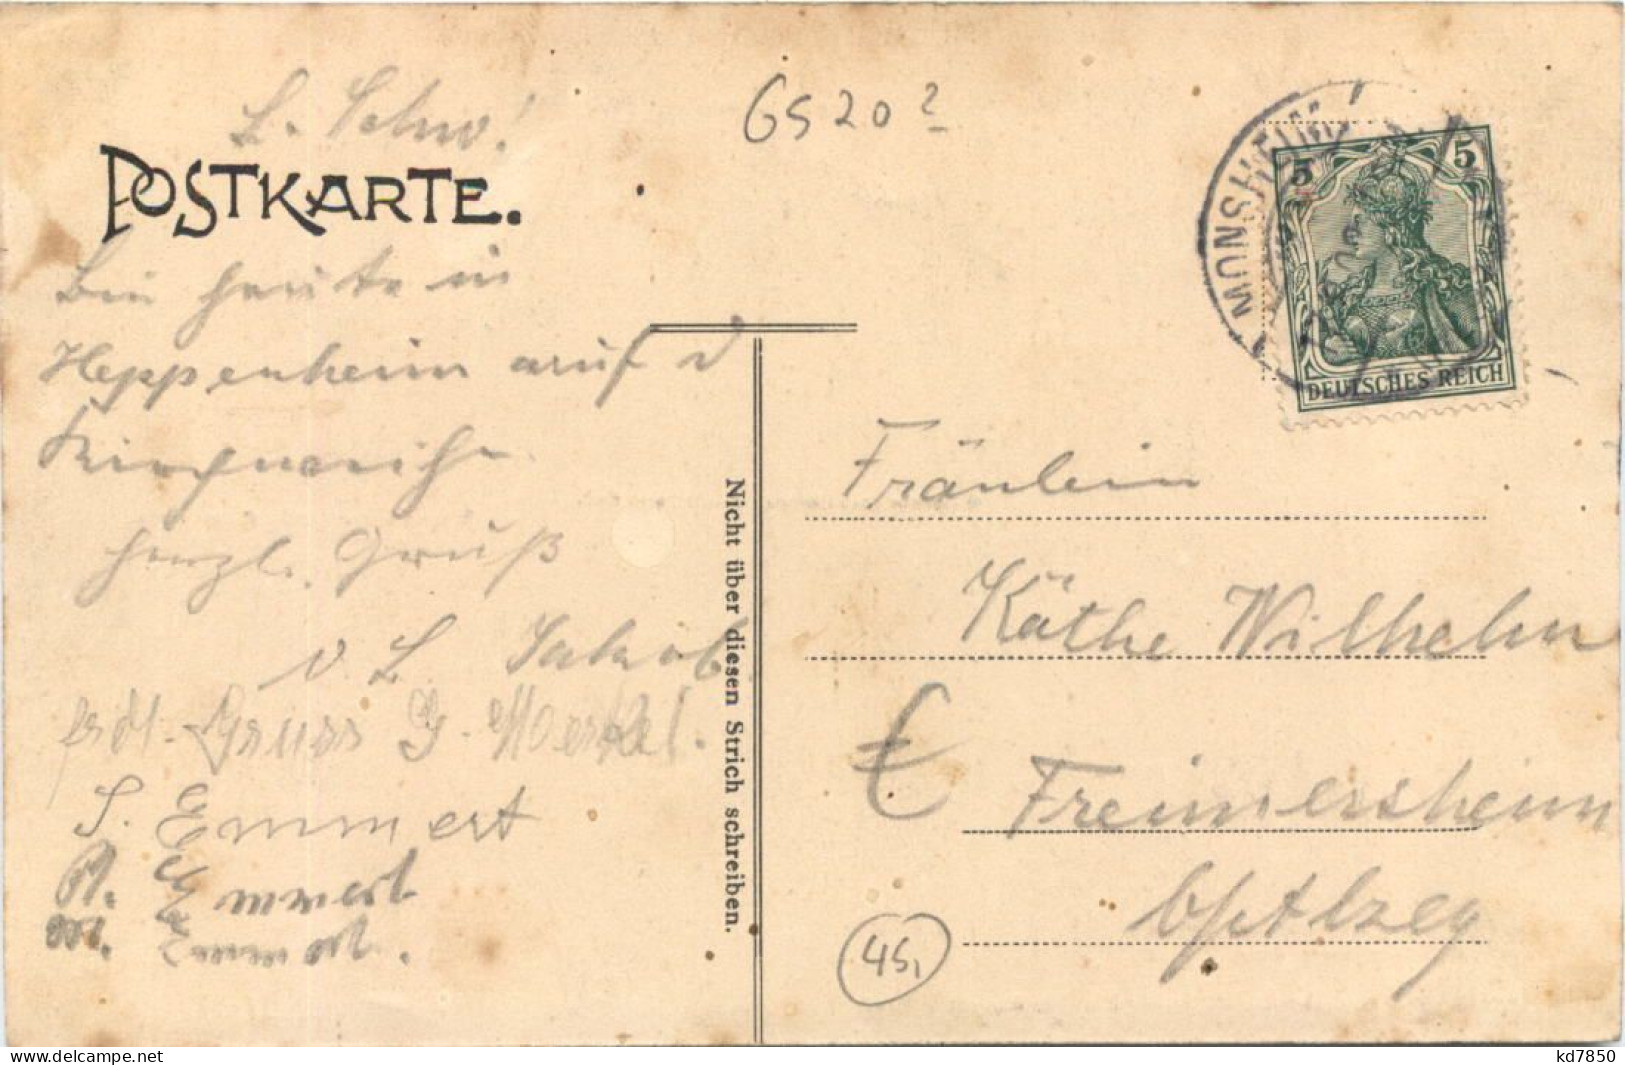 L. Schw!
6520?
POSTKARTE.
Bin heute in
Heppenheim auf d
Kirchweihe
herzl. Gruß
v. L. Jakob
Gruss G. Merkel.
S. Emmert
A. Emmert
M. Emmert.
Nicht über diesen Strich schreiben.
MONSHEIM
5 5
DEUTSCHES REICH
Fräulein
Käthe Wilhelm
Freimersheim
b/ Alzey
45,
www.delcampe.net
kd7850